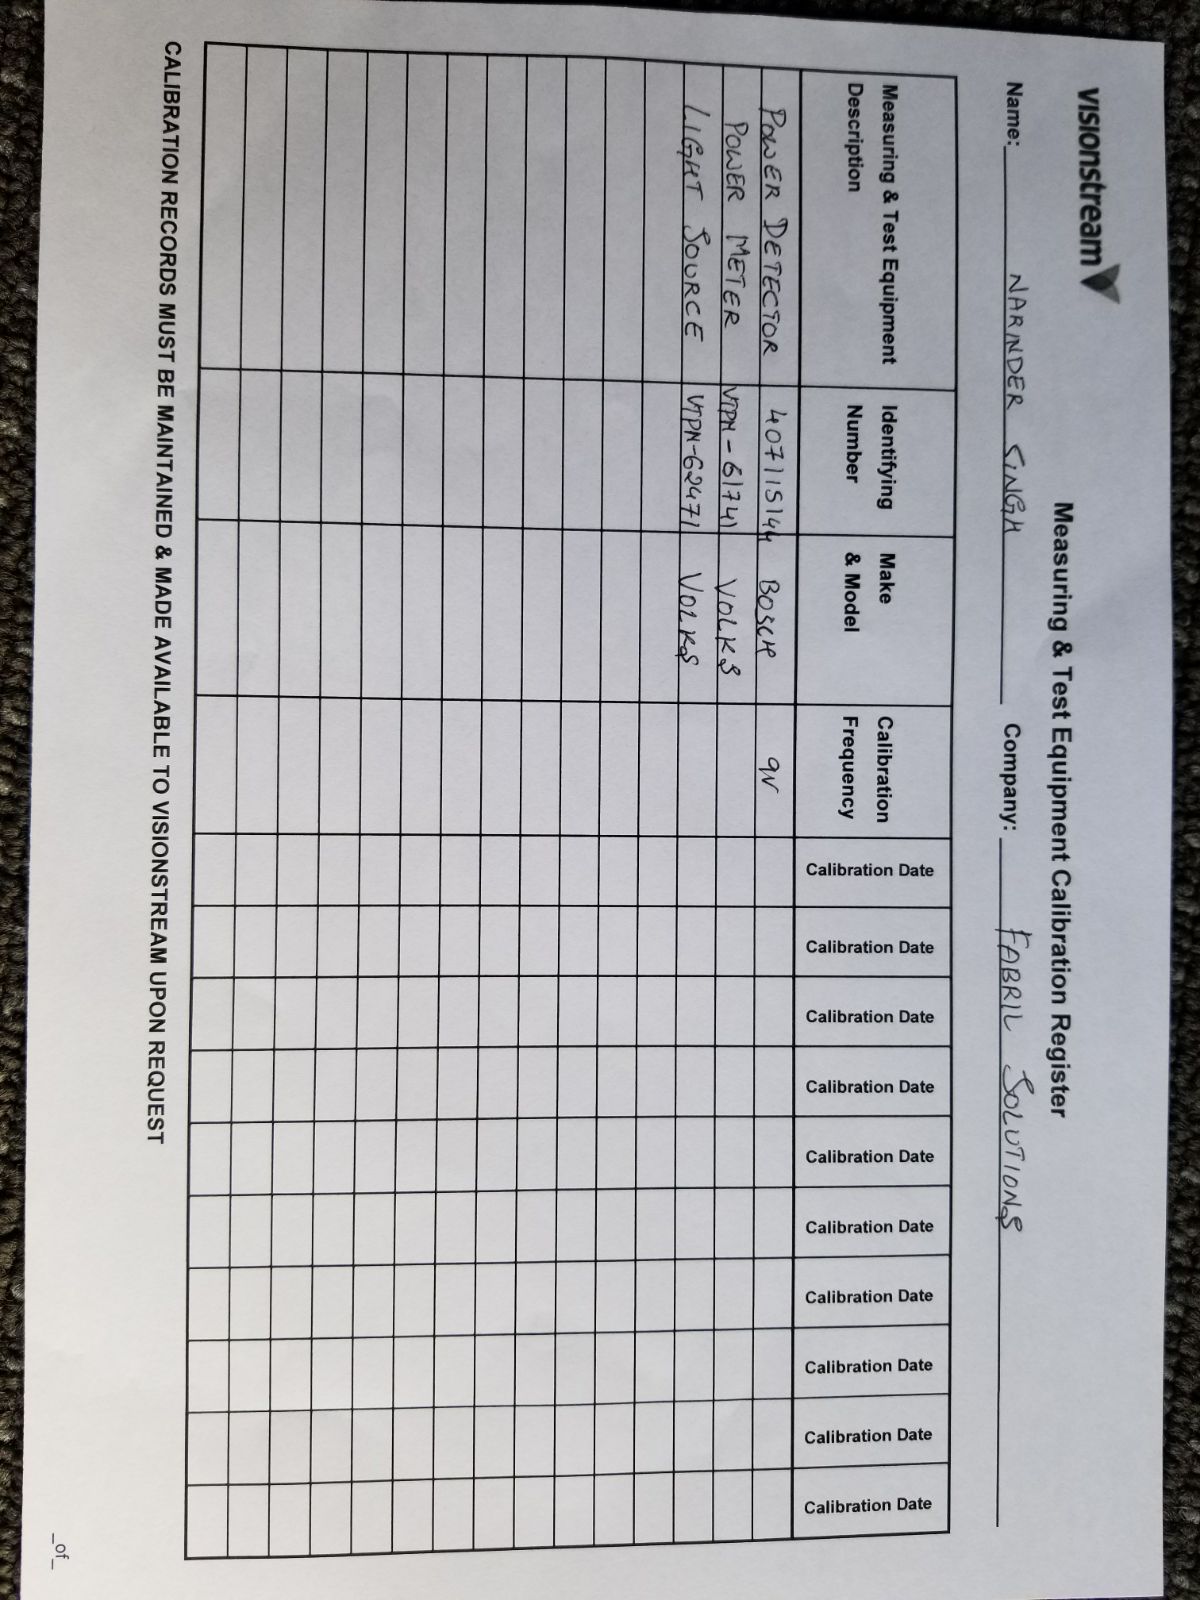 visionstream
Measuring & Test Equipment Calibration Register
Name: NARINDER SINGH Company: FABRIL SOLUTIONS
Measuring & Test Equipment Description Identifying Number Make & Model Calibration Frequency Calibration Date Calibration Date Calibration Date Calibration Date Calibration Date Calibration Date Calibration Date Calibration Date Calibration Date Calibration Date
POWER DETECTOR 407115144 BOSCH
POWER METER VTPM-61741 VOLKS
LIGHT SOURCE VTPM-62471 VOLKS
CALIBRATION RECORDS MUST BE MAINTAINED & MADE AVAILABLE TO VISIONSTREAM UPON REQUEST
_of_